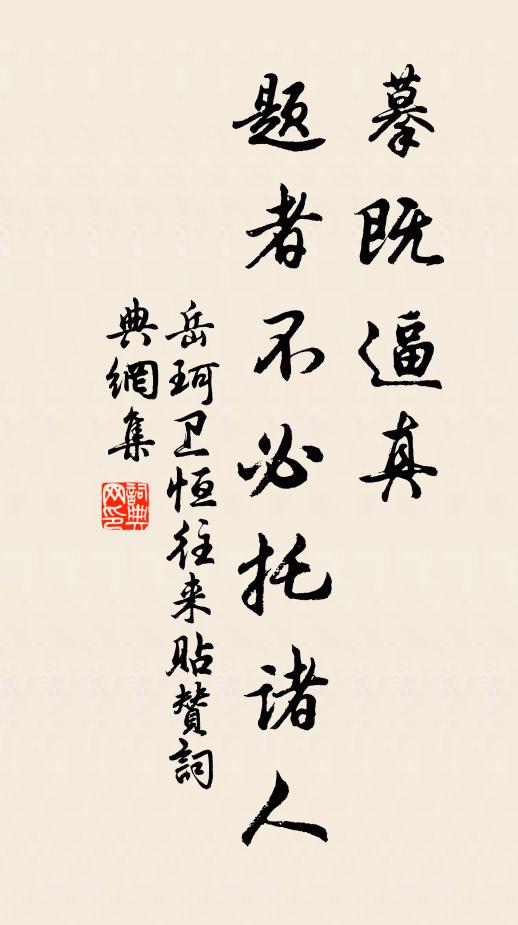 摹既逼真
题者不必托诸人
岳珂卫恒往来贴赞詞
典網集
詞典
网印